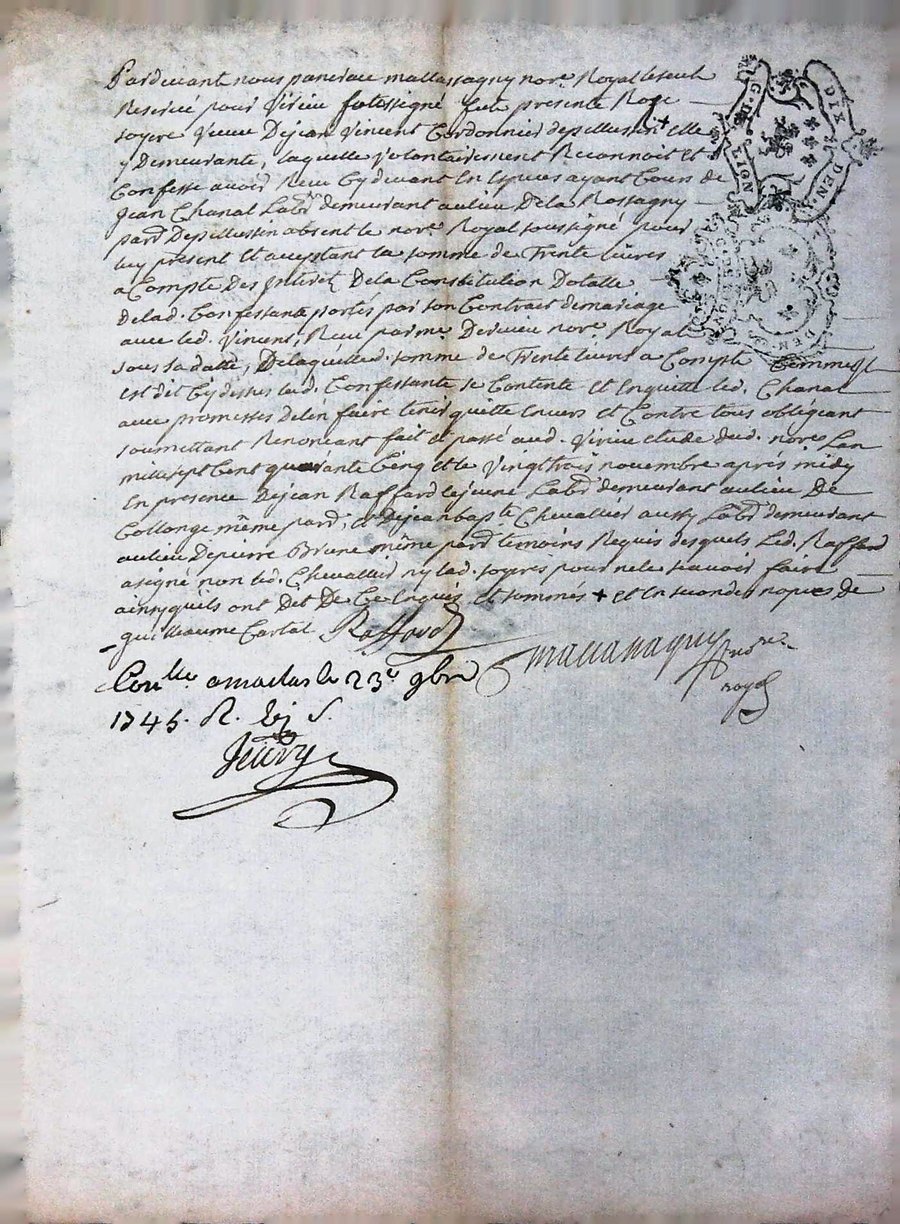 Pardevant nous panerau mallassagny nore. Royal le seul
Reservé pour Virieu soussigné fut presente Rose
soyere Veuve Dejean Vincent Cordonnier depellussin + elle
y Demeurante, laquelle volontairement Reconnoit et
Confesse avoir Receu Cydevant En Espèces ayant Cours de
Jean Chanal Labr. demeurant aulieu De la Rossagny
pard. Depellussin absent le nore. Royal soussigné pour
luy present Et acceptant la somme de Trente livres
a Compte Des Interet Dela Constitution Dotalle
Delad. Confessante portés par son Contrait demariage
avec led. Vincent, Receu par me Devieu nore. Royal
sous sa datte, De laquelle d. somme de Trente livres a Compte Comme Il
est dit Cydessus lad. Confessante se Contente Et Enquitte led. Chanal
avec promesses delén faire tenir quitte Envers et Contre tous obligéant
soumettant Renonceant fait et passé aud. Virieu etude dud. nore. Lan
mille sept Cent quarante Cinq et le Vingt trois novembre après midy
En presence Dejean Raffard lejeune Labr. demeurant aulieu De
Collonge même pard. et Dejean bapte. Chevallier aussy Labr. demeurant
aulieu Depierre Brune même pard. temoins Requis desquels Led. Raffard
a signé non led. Chevallier ny lad. soyeres pour ne le scavoir faire
ainsy quils ont Dit De Ce Enquis Et sommés + et En secondes nopces de
guilleaume Cartal Raffard
mallassagny nore.
royal
Conlle. a maclas le 23e. 9bre
1745. R. six s.